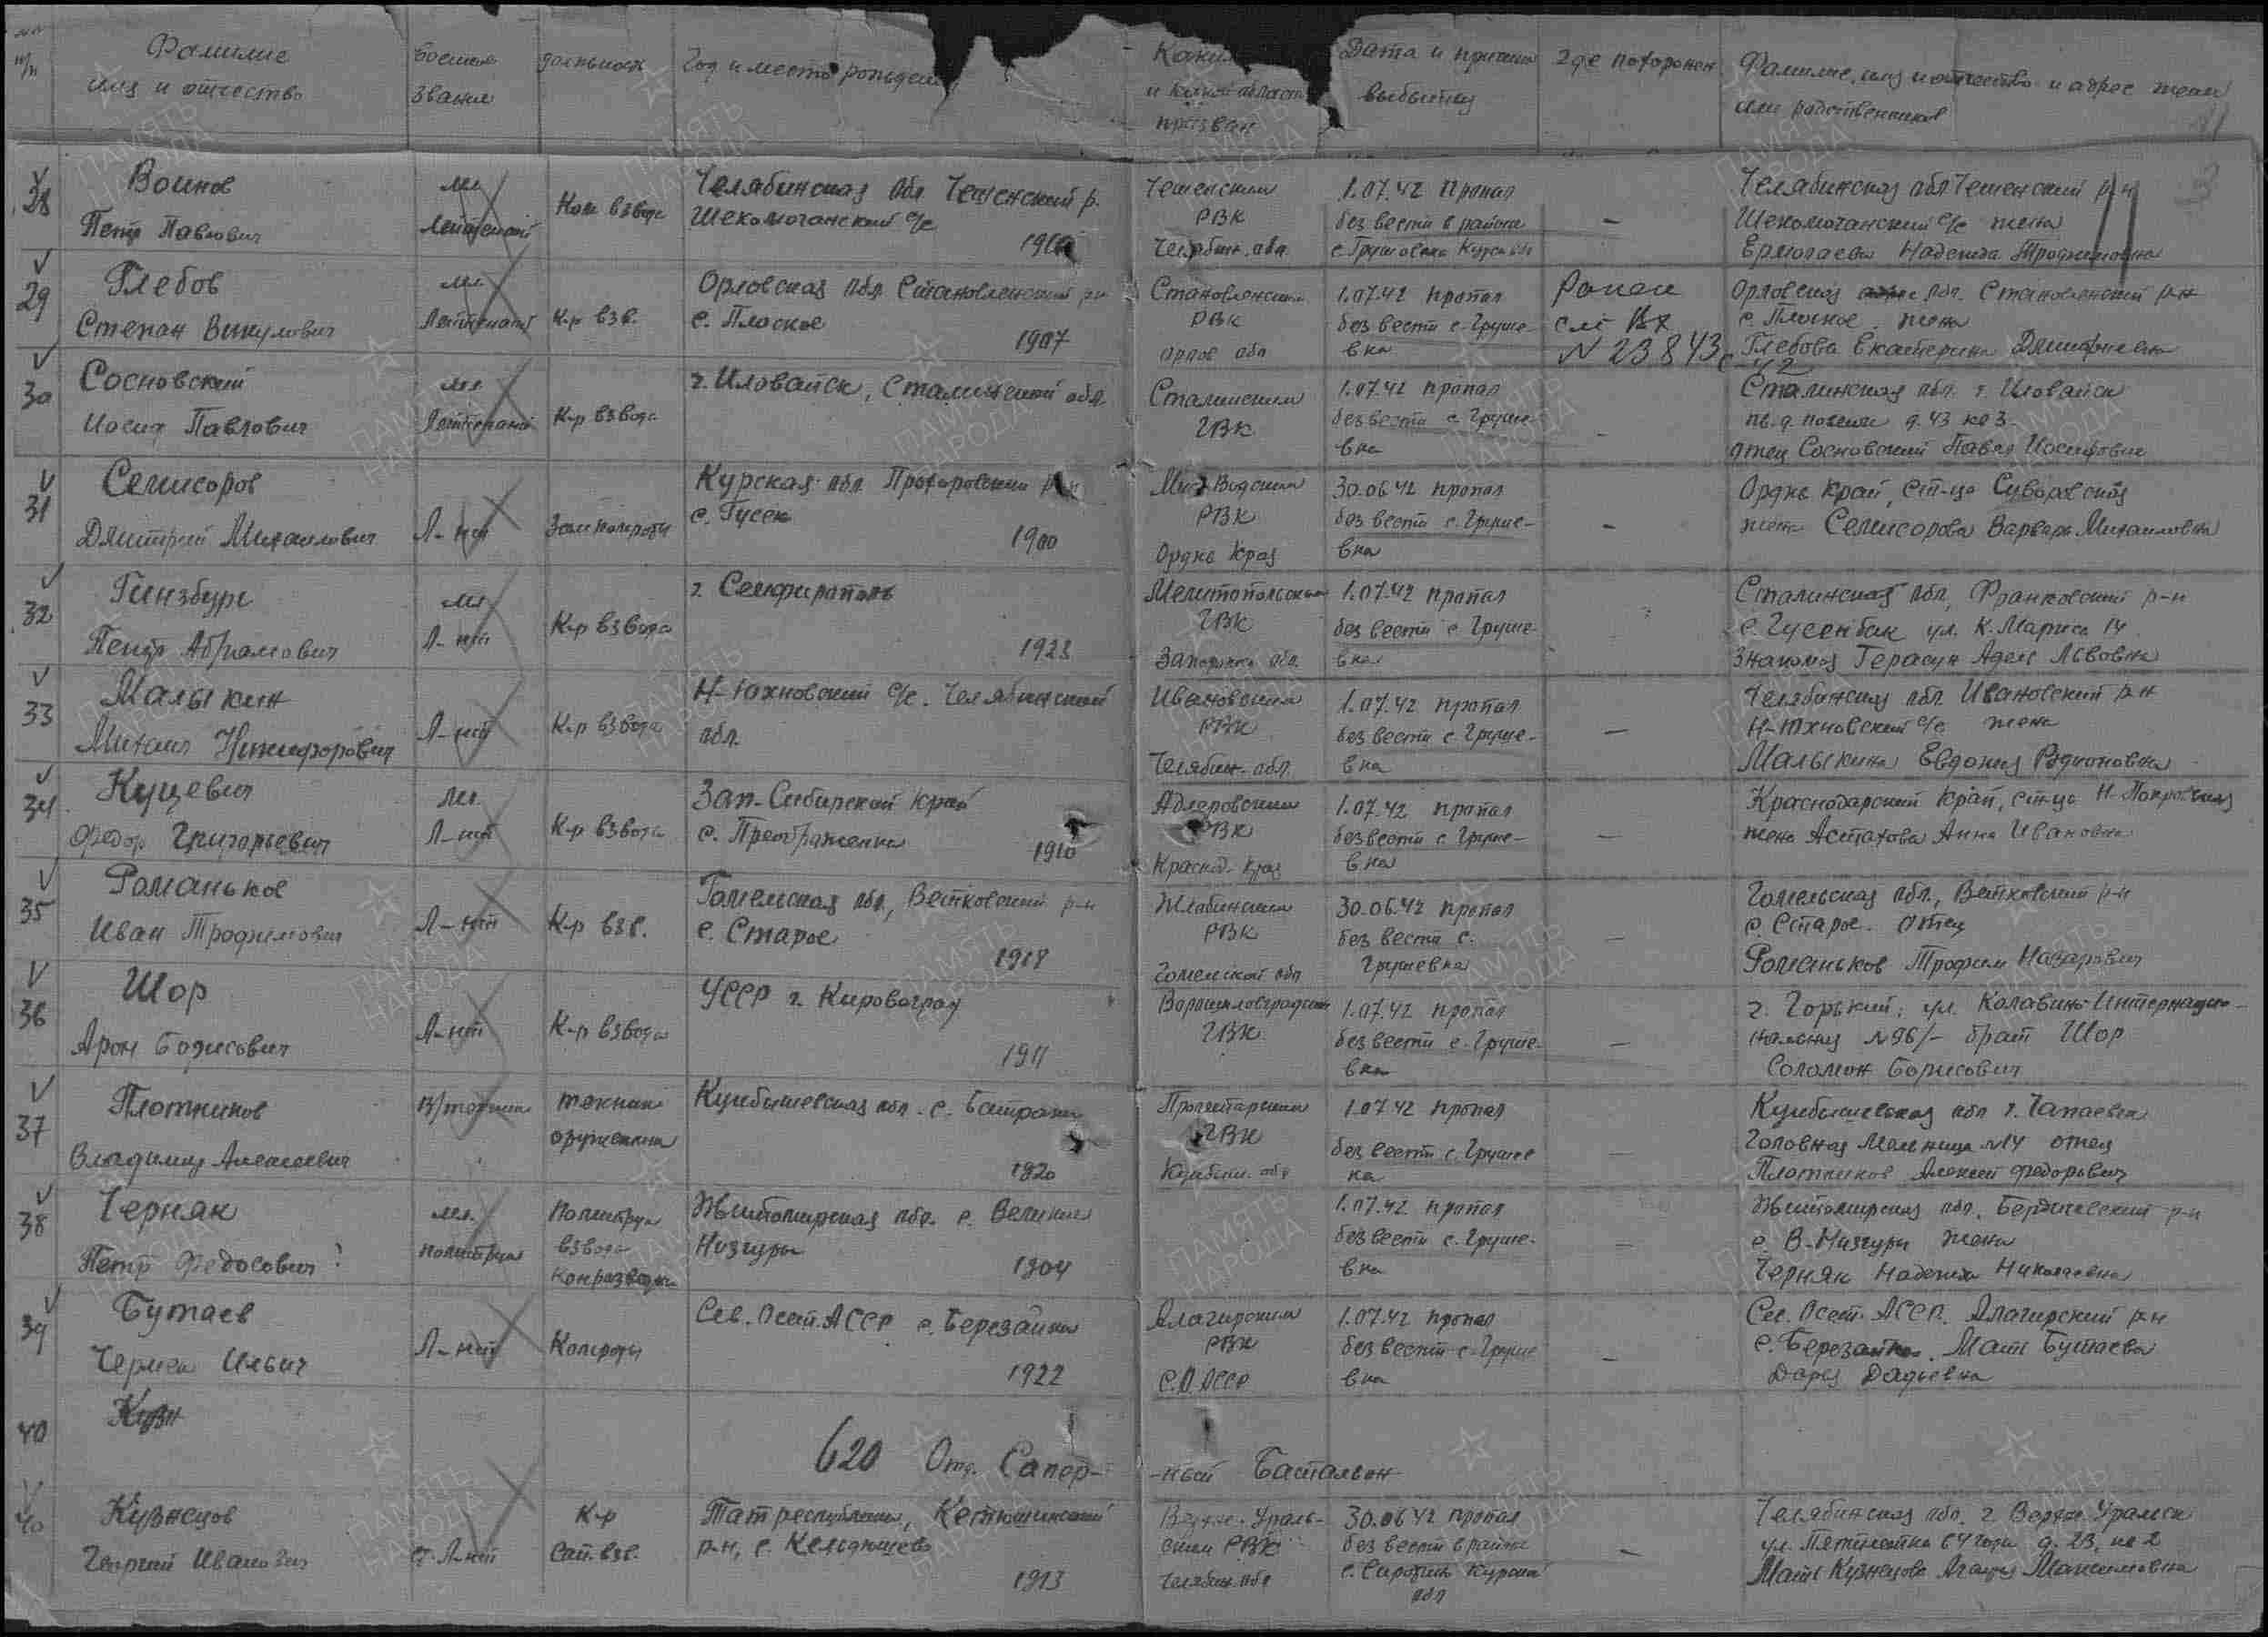 №№ п/п
Фамилие
имя и отчество
Воинск
звание
должность
Год и место рожден
Каким
и какой област
призван
Дата и причина
выбытия
Где похоронен
Фамилие, имя и отчество и адрес жены
или родственников
28
Воинов
Петр Павлович
мл.
Лейтенант
Ком взвода
Челябинская обл. Чешенский р.
Шекомоганский с/с
Чешенским
РВК
Челябин. обл.
1.07.42 пропал
без вести в районе
с. Грушовка Курск обл
—
Челябинская обл Чешенский р-н
Шекомоганский с/с жена
Надежда Трофимовна
29
Глебов
Степан Викулович
мл.
Лейтенант
К-р взв.
Орловская обл. Становлянский р-н
с. Плоское
1907
Становлянским
РВК
Орлов обл
1.07.42 пропал
без вести с. Груше-
вка
Ранен
см. Вх
N 23843с
42
Орловская обл. Становлянский р-н
с. Плоское жена
Глебова Екатерина Дмитриевна
30
Сосновский
Иосиф Павлович
мл.
Лейтенант
К-р взвода
г. Иловайск, Сталинской обл.
Сталинским
ГВК
1.07.42 пропал
без вести с. Груше-
вка
-
Сталинская обл. г. Иловайск
д. 43 кв 3
отец Сосновский Павел Иосифович
31
Семисоров
Дмитрий Михайлович
Л-нт
Зам комроты
Курская обл. Прохоровский р-н
с. Гусек
1900
Мин Водским
РВК
Орджк Край
30.06.42 пропал
без вести с. Груше-
вка
-
Орджк край, ст-ца Суворовская
жена Семисорова Варвара Михаиловна
32
Гинзбург
Петр Абрамович
мл
Л-нт
К-р взвода
г. Семфирополь
1923
Мелитопольским
ГВК
Запорожск обл.
1.07.42 пропал
без вести с Груше-
вка
Сталинская обл, р-н
ул. К. Маркса 14
Знакомая Герасун Адель Львовна
33
Малыкин
Михаил Никифорович
Л-нт
К-р взвода
Н-Юхновский с/с. Челябинской
обл.
Ивановским
РВК
Челябин. обл.
1.07.42 пропал
без вести с. Груше-
вка
—
Челябинская обл Ивановский р-н
Н-Юхновский с/с жена
Малыкина Евдокия Родионовна
34
Куцевич
Федор Григорьевич
мл.
Л-нт
К-р взвода
Зап-Сибирский край
с. Преображенка
1910
Адлеровским
РВК
Краснод. Края
1.07.42 пропал
без вести с. Груше-
вка
—
Краснодарский край, ст-ца Н-Покровская
жена Астахова Анна Ивановна
35
Романьков
Иван Трофимович
Л-нт
К-р взв.
Гомельская обл., Ветковский р-н
с. Старое
1918
Жлобинским
РВК
Гомельской обл
30.06.42 пропал
без вести с.
Грушевка
—
Гомельская обл., Ветковский р-н
с. Старое. отец
Романьков Трофим Назарович
36
Шор
Арон Борисович
Л-нт
К-р взвода
УССР г. Кировоград
1911
Ворошиловградским
ГВК
1.07.42 пропал
без вести с. Груше-
вка
—
г. Горький, ул. Интернацио-
нальная №96/- брат Шор
Соломон Борисович
37
Плотников
Владимир Алексеевич
В/техник
техник
оружейник
Куйбышевская обл. с. Батраки
1920
Пролетарским
ГВК
Куйбыш. обл
1.07.42 пропал
без вести с. Грушев
ка
—
Куйбышевская обл г. Чапаевск
Головная Мельница №14 отец
Плотников Алексей Федорович
38
Черняк
Петр Федосович?
мл.
политрук
Политрук
взвода
конразведки
Житомирская обл. с. Великие
Низгуры
1904
1.07.42 пропал
без вести с. Груше-
вка
—
Житомирская обл. Бердичевский р-н
с. В-Низгуры жена
Черняк Надежда Николаевна
39
Бутаев
Чермен Ильич
Л-нт
Комроты
Сев. Осет. АССР с. Березайка
1922
Алагирским
РВК
С.О.АССР
1.07.42 пропал
без вести с. Груше
вка
—
Сев. Осет. АССР. Алагирский р-н
Мать Бутаева
40
Кузн
620 Отд. Сапер-
-ный Батальон
40
Кузнецов
Георгий Иванович
ст. Л-нт
К-р
Сап. взв.
Тат республики,
р-н, с.
1913
Верхне-Ураль-
ским РВК
Челябин. обл
30.06.42 пропал
без вести в районе
с. Сиротин Курской
обл
—
Челябинская обл. г. Верхне Уральск
д. 23, кв 2
Мать Кузнецова Максимовна
ПАМЯТЬ
НАРОДА